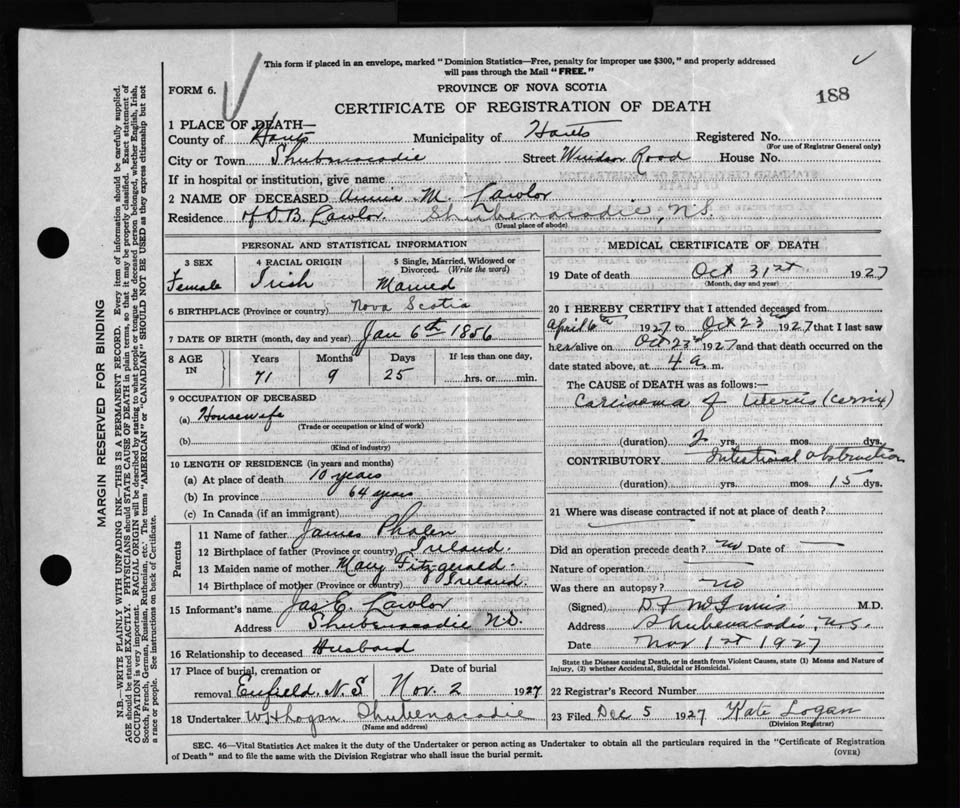 This form if placed in an envelope, marked "Dominion Statistics—Free, penalty for improper use $300," and properly addressed
will pass through the Mail "FREE."
FORM 6.
PROVINCE OF NOVA SCOTIA
188
CERTIFICATE OF REGISTRATION OF DEATH
1 PLACE OF DEATH—
County of Hants Municipality of Hants Registered No.
(For use of Registrar General only)
City or Town Shubenacadie Street Windsor Road House No.
If in hospital or institution, give name
2 NAME OF DECEASED Annie M. Lawlor
Residence of D.B. Lawlor Shubenacadie, N.S.
(Usual place of abode)
PERSONAL AND STATISTICAL INFORMATION
3 SEX 4 RACIAL ORIGIN 5 Single, Married, Widowed or
Divorced. (Write the word)
Female Irish Married
6 BIRTHPLACE (Province or country) Nova Scotia
7 DATE OF BIRTH (month, day and year) Jan 6th 1856
8 AGE IN Years Months Days If less than one day,
71 9 25 hrs. or min.
9 OCCUPATION OF DECEASED
(a) Housewife
(Trade or occupation or kind of work)
(b)
(Kind of industry)
10 LENGTH OF RESIDENCE (in years and months)
(a) At place of death 10 years
(b) In province 64 years
(c) In Canada (if an immigrant)
Parents
11 Name of father James Phalen
12 Birthplace of father (Province or country) Ireland.
13 Maiden name of mother Mary Fitzgerald.
14 Birthplace of mother (Province or country) Ireland
15 Informant's name Jas E. Lawlor
Address Shubenacadie N.S.
16 Relationship to deceased Husband
17 Place of burial, cremation or Date of burial
removal Enfield, N.S Nov. 2 1927
18 Undertaker Logan Shubenacadie
(Name and address)
MEDICAL CERTIFICATE OF DEATH
19 Date of death Oct 31st 1927
(Month, day and year)
20 I HEREBY CERTIFY that I attended deceased from
April 6th 1927 to Oct 23rd 1927 that I last saw
her alive on Oct 23rd 1927 and that death occurred on the
date stated above, at 4 a. m.
The CAUSE of DEATH was as follows:—
Carcinoma of Uterus
(duration) 2 yrs. mos. dys.
CONTRIBUTORY Intestinal obstruction
(duration) yrs. mos. 15 dys.
21 Where was disease contracted if not at place of death?
Did an operation precede death? no Date of —
Nature of operation
Was there an autopsy? no
(Signed) D F McInnis M.D.
Address Shubenacadie, N.S.
Date Nov 1st 1927
State the Disease causing Death, or in death from Violent Causes, state (1) Means and Nature of
Injury, (2) whether Accidental, Suicidal or Homicidal.
22 Registrar's Record Number
23 Filed Dec 5 1927 Kate Logan
(Division Registrar)
SEC. 46—Vital Statistics Act makes it the duty of the Undertaker or person acting as Undertaker to obtain all the particulars required in the "Certificate of Registration
of Death" and to file the same with the Division Registrar who shall issue the burial permit.
(OVER)
MARGIN RESERVED FOR BINDING
N.B.—WRITE PLAINLY WITH UNFADING INK—THIS IS A PERMANENT RECORD. Every item of information should be carefully supplied.
AGE should be stated EXACTLY. PHYSICIANS should STATE CAUSE OF DEATH in plain terms, so that it may be properly classified. Exact statement of
OCCUPATION is very important. RACIAL ORIGIN will be described by stating to what people or tongue the deceased person belonged, whether English, Irish,
Scotch, French, German, Russian, Ruthenian, etc. The terms "AMERICAN" or "CANADIAN" SHOULD NOT BE USED as they express citizenship but not
a race or people. See instructions on back of Certificate.